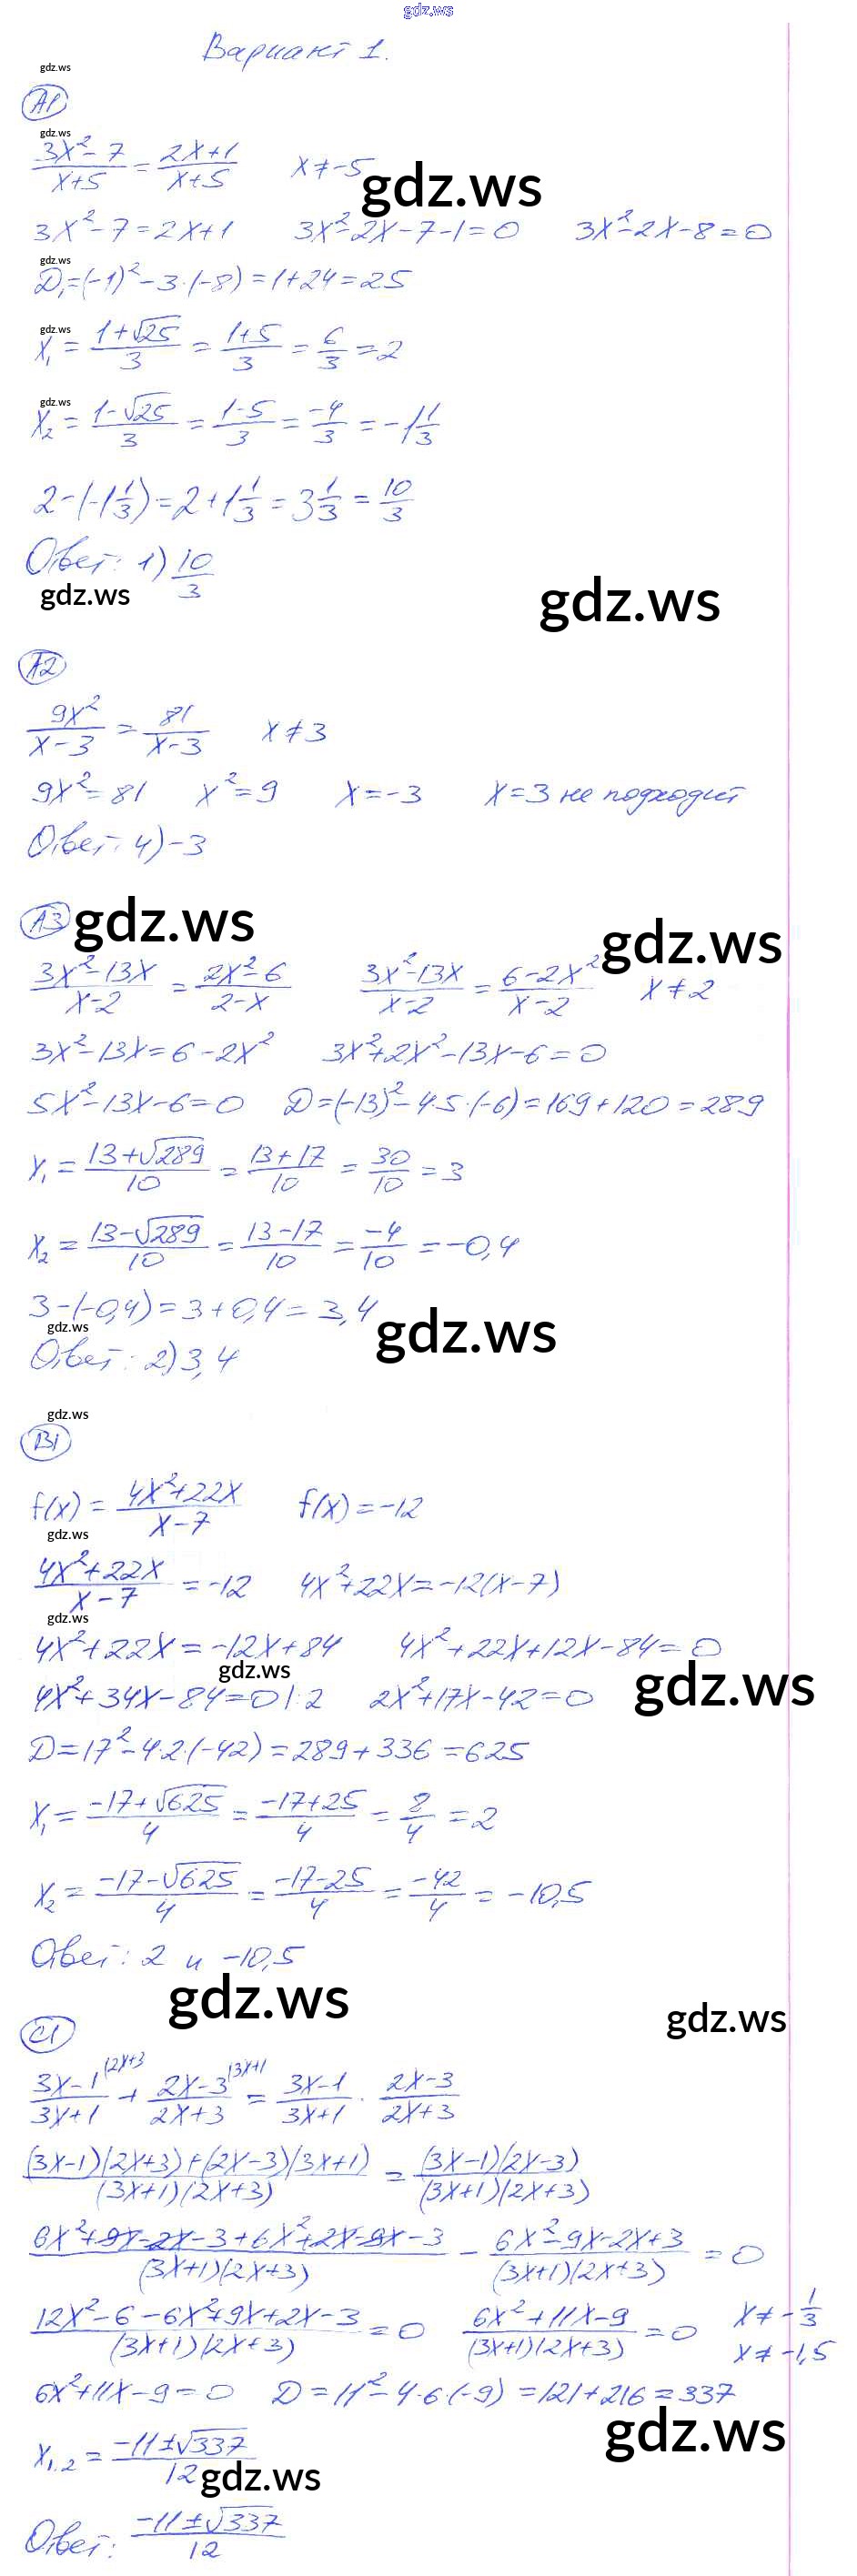 gdz.ws
Вариант 1.
gdz.ws
А1
gdz.ws
(3x²-7)/(x+5) = (2x+1)/(x+5)   x≠-5
gdz.ws
3x²-7=2x+1   3x²-2x-7-1=0   3x²-2x-8=0
gdz.ws
D₁=(-1)²-3·(-8)=1+24=25
gdz.ws
x₁ = (1+√25)/3 = (1+5)/3 = 6/3 = 2
gdz.ws
x₂ = (1-√25)/3 = (1-5)/3 = -4/3 = -1 1/3
2-(-1 1/3)=2+1 1/3=3 1/3=10/3
Ответ: 1) 10/3
gdz.ws
gdz.ws
А2
9x²/(x-3) = 81/(x-3)   x≠3
9x²=81   x²=9   x=-3   x=3 не подходит
Ответ: 4) -3
А3
gdz.ws
gdz.ws
(3x²-13x)/(x-2) = (2x²-6)/(2-x)   (3x²-13x)/(x-2) = (6-2x²)/(x-2)   x≠2
3x²-13x=6-2x²   3x²+2x²-13x-6=0
5x²-13x-6=0   D=(-13)²-4·5·(-6)=169+120=289
x₁ = (13+√289)/10 = (13+17)/10 = 30/10 = 3
x₂ = (13-√289)/10 = (13-17)/10 = -4/10 = -0,4
3-(-0,4)=3+0,4=3,4
gdz.ws
gdz.ws
Ответ: 2) 3,4
gdz.ws
В1
f(x) = (4x²+22x)/(x-7)   f(x)=-12
gdz.ws
(4x²+22x)/(x-7) = -12   4x²+22x=-12(x-7)
gdz.ws
4x²+22x=-12x+84   4x²+22x+12x-84=0
gdz.ws
gdz.ws
4x²+34x-84=0 |:2   2x²+17x-42=0
D=17²-4·2·(-42)=289+336=625
x₁ = (-17+√625)/4 = (-17+25)/4 = 8/4 = 2
x₂ = (-17-√625)/4 = (-17-25)/4 = -42/4 = -10,5
Ответ: 2 и -10,5
gdz.ws
gdz.ws
С1
(3x-1)/(3x+1) |2x+3 + (2x-3)/(2x+3) |3x+1 = (3x-1)/(3x+1) · (2x-3)/(2x+3)
((3x-1)(2x+3)+(2x-3)(3x+1))/((3x+1)(2x+3)) = ((3x-1)(2x-3))/((3x+1)(2x+3))
(6x²+9x-2x-3+6x²+2x-9x-3)/((3x+1)(2x+3)) - (6x²-9x-2x+3)/((3x+1)(2x+3)) = 0
(12x²-6-6x²+9x+2x-3)/((3x+1)(2x+3)) = 0   (6x²+11x-9)/((3x+1)(2x+3)) = 0   x≠-1/3
x≠-1,5
6x²+11x-9=0   D=11²-4·6·(-9)=121+216=337
gdz.ws
x₁,₂ = (-11±√337)/12
gdz.ws
Ответ: (-11±√337)/12